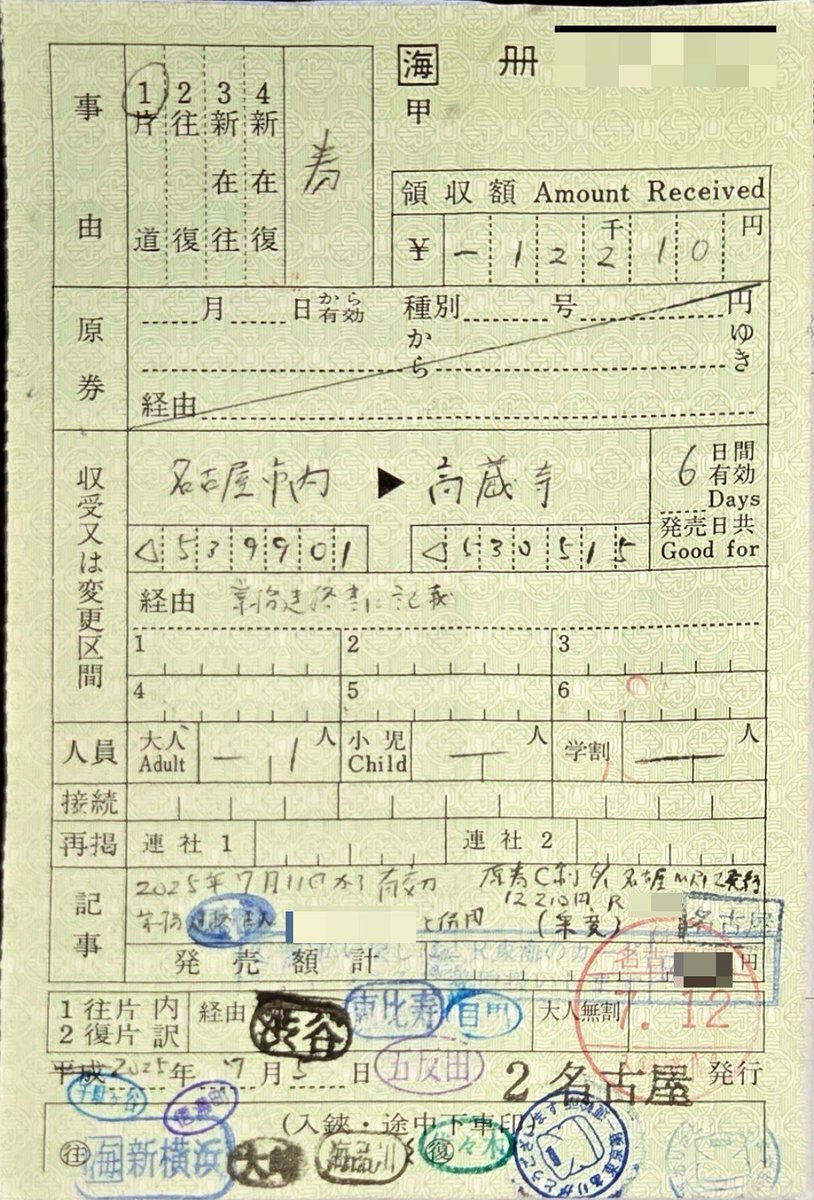 海 冊
甲
事由
1片道 2往復 3新在往 4新在復
寿
領収額 Amount Received
¥ -122千10円
原券
月 日から有効 種別 号 円
から ゆき
経由
収受又は変更区間
名古屋市内 ▶ 高蔵寺
6日間有効 Days
発売日共 Good for
◁539901 ◁530515
経由
1 2 3
4 5 6
人員 大人 Adult -1人 小児 Child 人 学割 人
接続
再掲 連社1 連社2
記事
2025年7月11日から有効
12210円
名古屋
発売額計 円
1往片内
2復片訳
経由 大人無割
渋谷 恵比寿 目黒
7.12
平成 2025年7月5日
五反田
2名古屋 発行
千駄ヶ谷 信濃町
(入鋏・途中下車印)
往 海新横浜 大崎 海品川 復 代々木